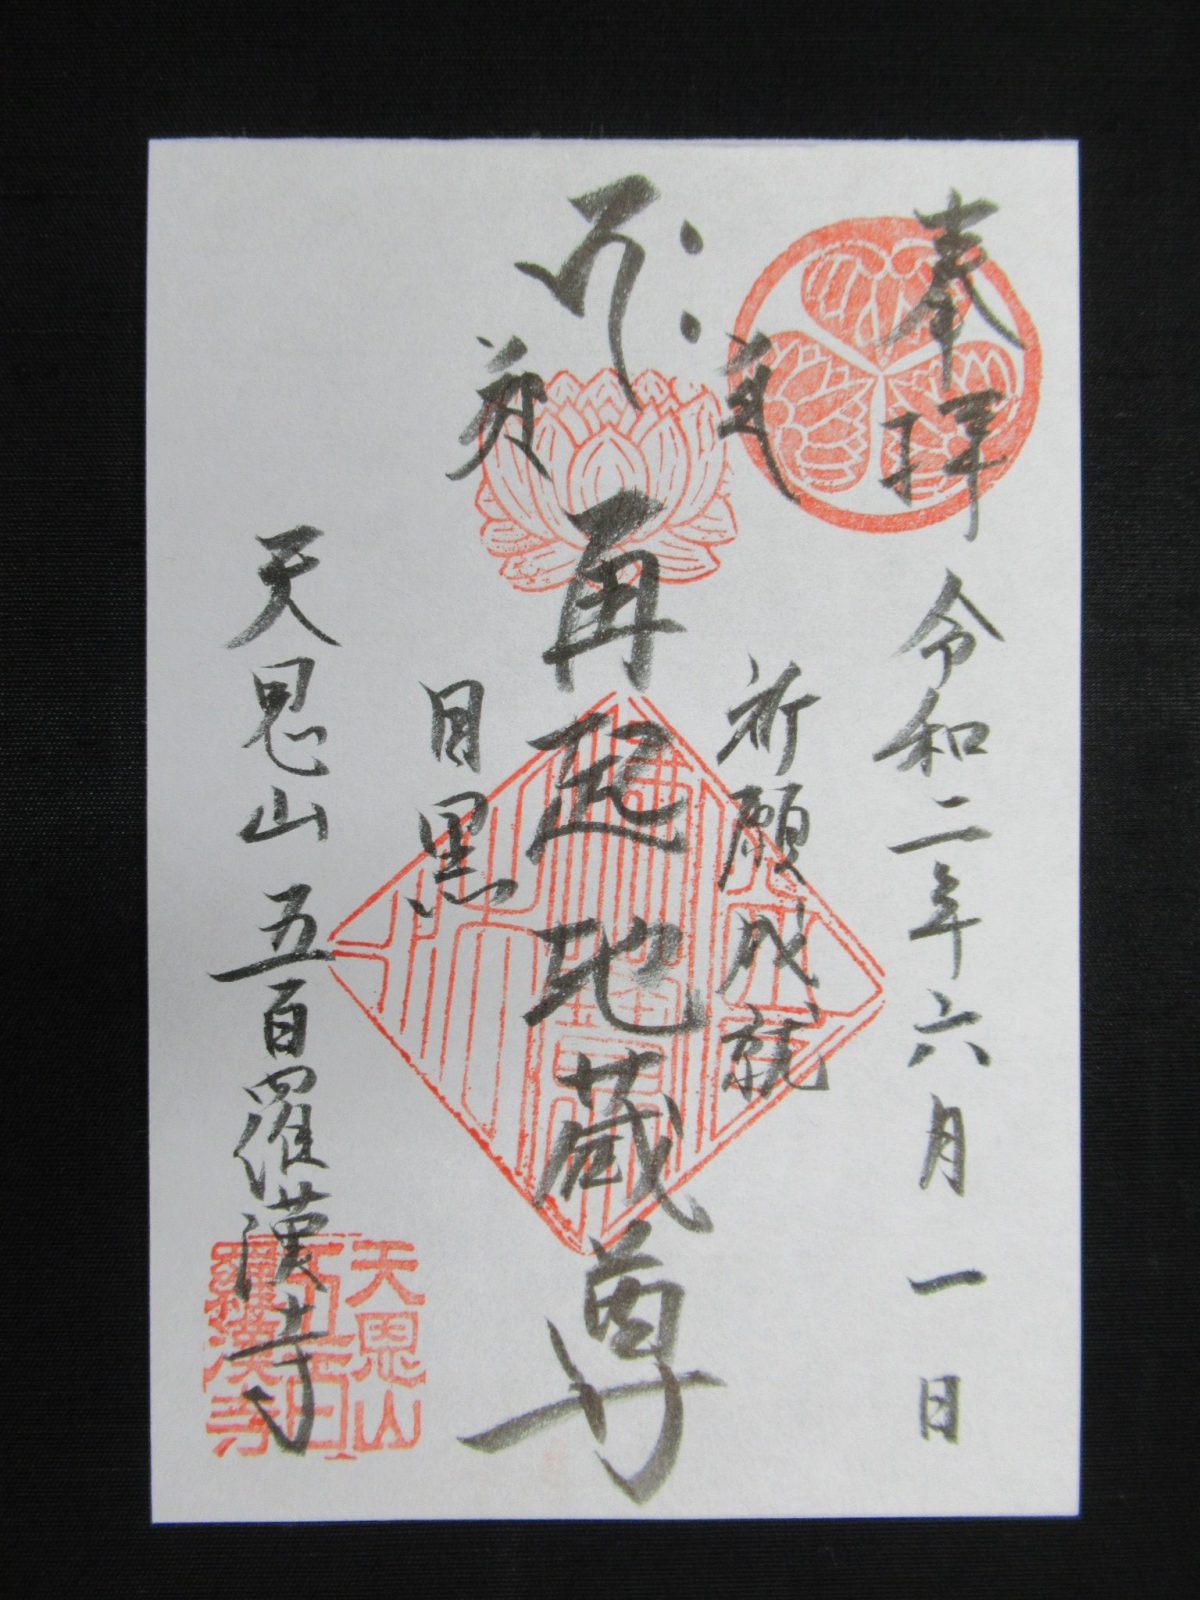 奉拝 令和二年六月一日
祈願成就
再起地蔵尊
目黒
天恩山 五百羅漢寺
天恩山
五百
羅漢寺